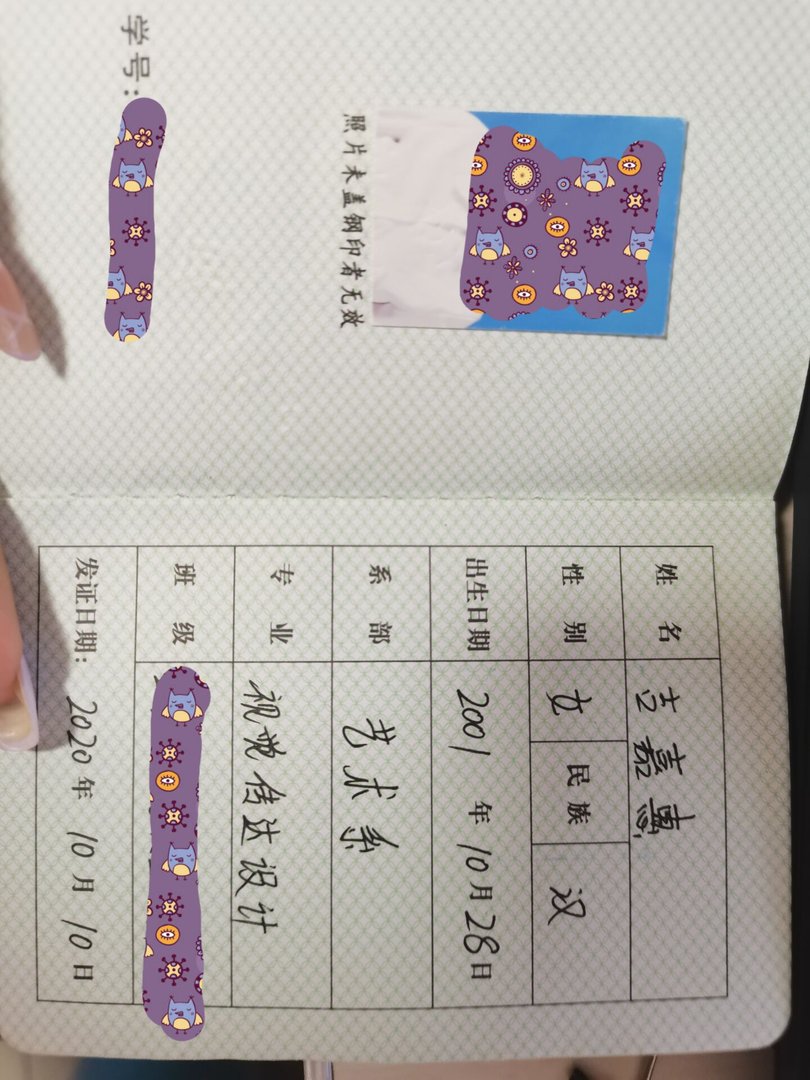 照片未盖钢印者无效
学号:
姓名 吉嘉惠
性别 女 民族 汉
出生日期 2001年10月28日
系部 艺术系
专业 视觉传达设计
班级
发证日期: 2020年10月10日